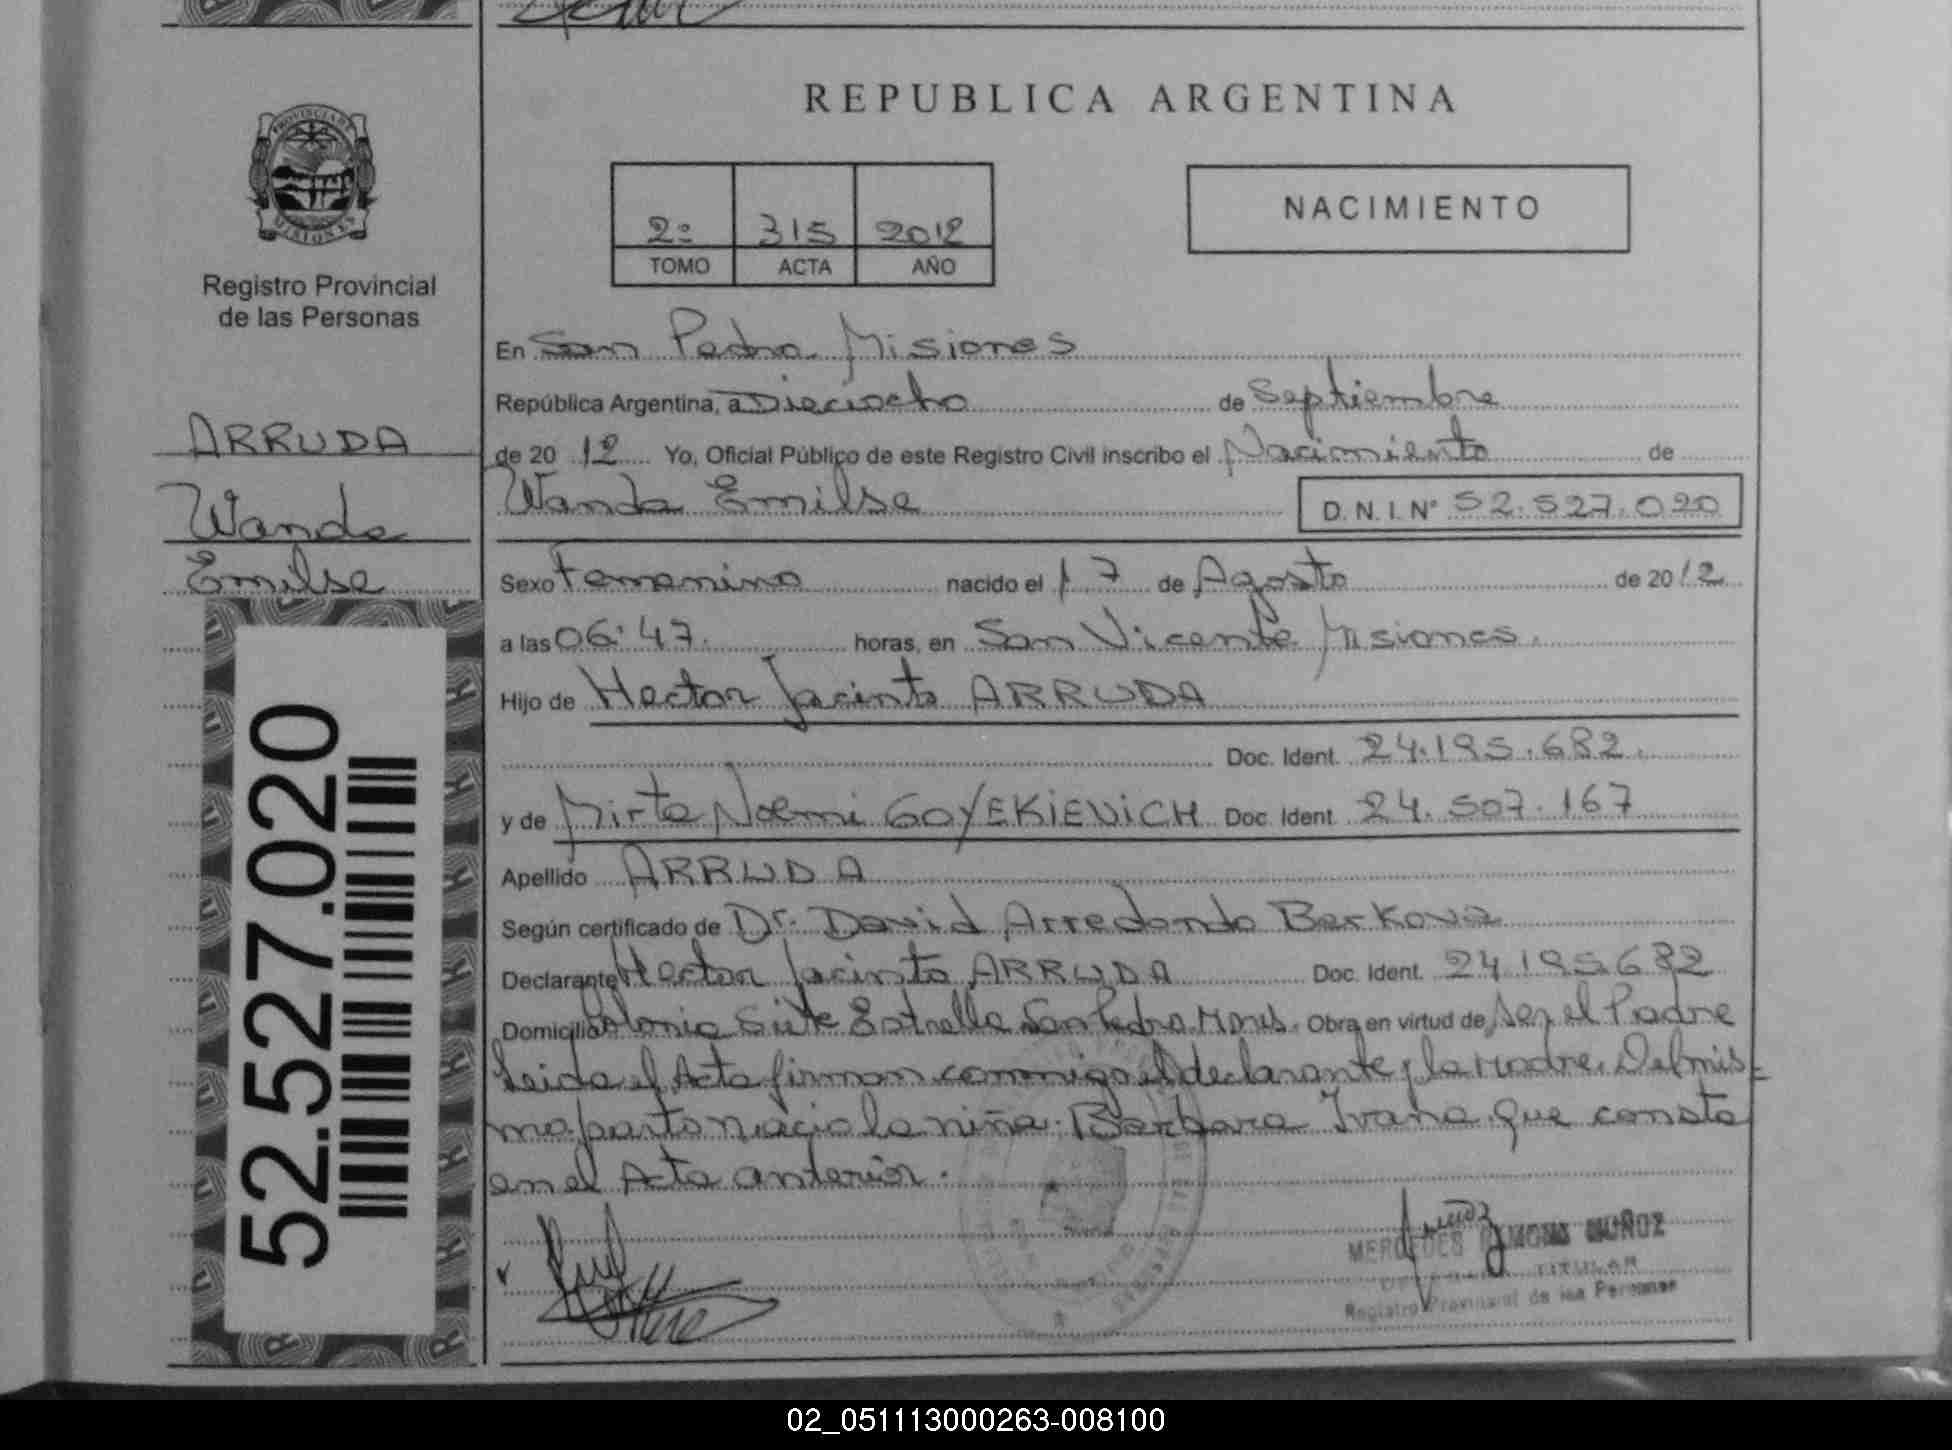 REPUBLICA ARGENTINA
PROVINCIA DE
MISIONES
Registro Provincial
de las Personas
2º 315 2012
TOMO ACTA AÑO
NACIMIENTO
ARRUDA
Wanda
Emilse
52.527.020
En San Pedro Misiones
República Argentina, a Dieciocho de Septiembre
de 20 12 Yo, Oficial Público de este Registro Civil inscribo el Nacimiento de
Wanda Emilse D.N.I. Nº 52.527.020
Sexo Femenino nacido el 17 de Agosto de 2012
a las 06:47. horas, en San Vicente Misiones.
Hijo de Hector Jacinto ARRUDA
Doc. Ident. 24.195.682.
y de Mirta Noemi GOYEKIEVICH Doc. Ident. 24.507.167
Apellido ARRUDA
Según certificado de Dr. David Arredondo
Declarante Hector Jacinto ARRUDA Doc. Ident. 24195682
Domicilio Colonia Siete Estrella San Pedro Mnes. Obra en virtud de ser el Padre
Leida el Acta firman conmigo el declarante y la Madre. Del mis=
mo parto nacio la niña: Barbara Ivana que consta
en el Acta anterior.
MERCEDES RAMONA MUÑOZ
TITULAR
Registro Provincial de las Personas
02_051113000263-008100